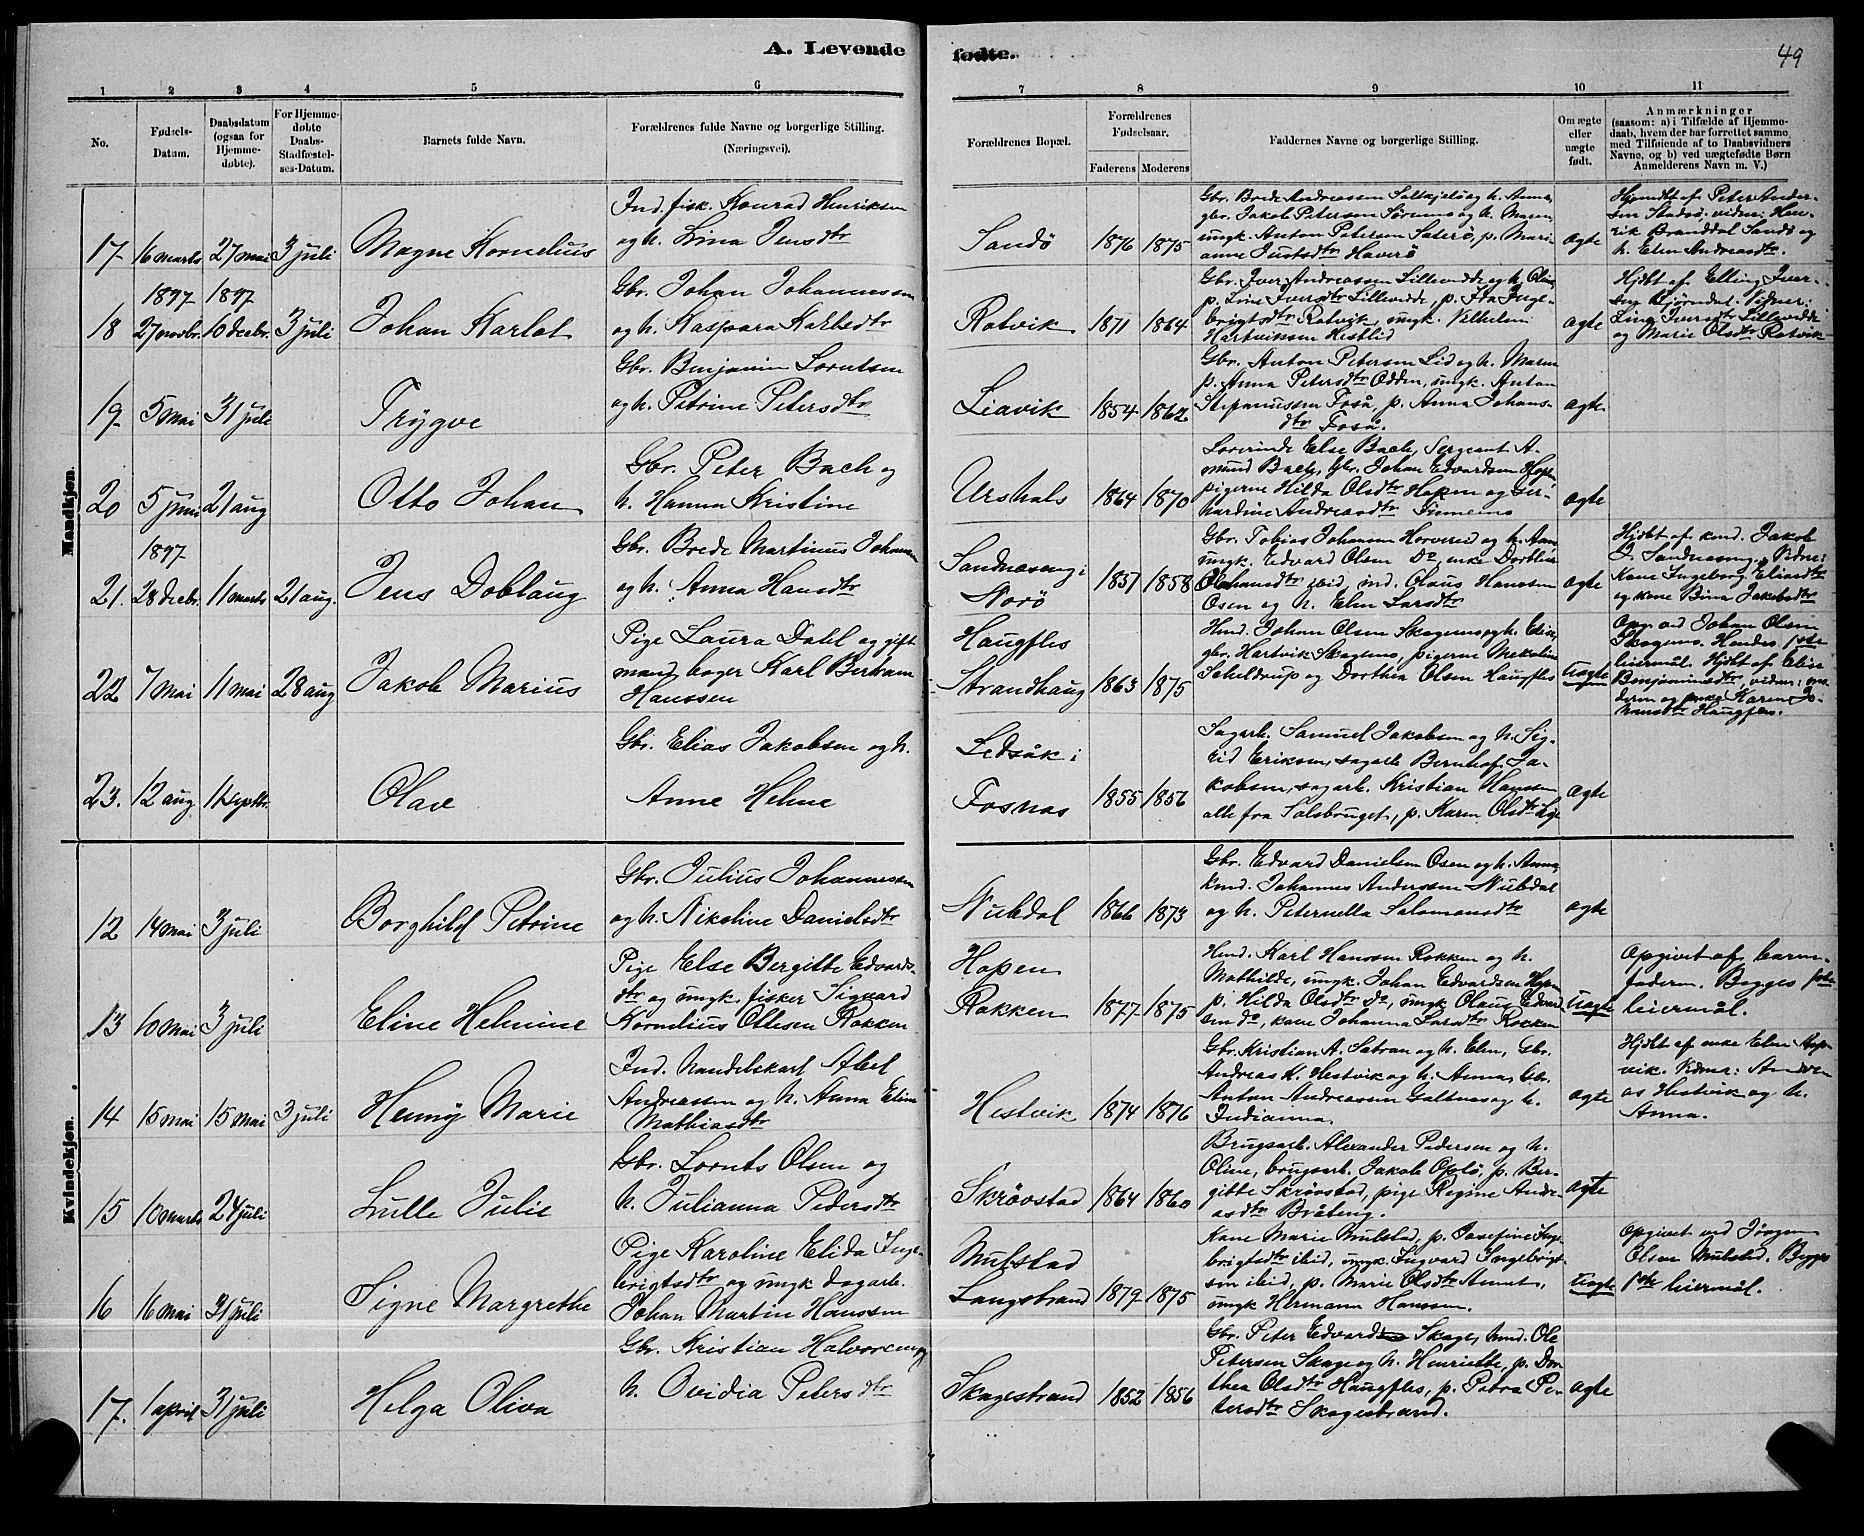 A. Levende fødte.
49
1 2 3 4 5 6 7 8 9 10 11
No.
Fødsels-Datum.
Daabsdatum (ogsaa for Hjemme-døbte).
For Hjemme-døbte Daabs-Stadfæstel-ses-Datum.
Barnets fulde Navn.
Forældrenes fulde Navne og borgerlige Stilling. (Næringsvei).
Forældrenes Bopæl.
Forældrenes Fødselsaar.
Faderens Moderens
Faddernes Navne og borgerlige Stilling.
Om ægte eller uægte født.
Anmærkninger
(saasom: a) i Tilfælde af Hjemme-
daab, hvem der har forrettet samme
med Tilføiende af to Daabsvidners
Navne, og b) ved uægtefødte Børn
Anmelderens Navn m. V.)
Mandkjøn.
17 16 marts 27 mai 3 juli
Magne Kornelius
Ind. fisk. Konrad Henriksen
og h. Lina Jensdtr
Sandö
1876 1875
Gbr. Brede Andreassen og h. Anna,
gbr. Jakob Petersen og h. Maren,
ungk. Anton Petersen Saterö, p. Mari-
anne Justsdtr Haverö
ægte
Hjemdt af Peter Ander-
sen vidner: Hen-
rik Branddal Sandö og
h. Elen Andreasdtr.
18 1897 27 novbr. 1897 10 decbr. 3 juli
Johan Karlot
Gbr. Johan Johannessen
og h. Kaspara
Rotvik
1871 1864
Gbr. Iver Andreassen og h. Oline
p. Line Iversdtr Lillevidde, p. Inge-
brigtsdtr Rotvik, ungk. Vilhelm
Hartviksen Hestlid
ægte
Hjdbt af Elling Iver-
sen Vidner:
Line Iversdtr Lillevidde
og Marie Olsdtr Rotvik
19 5 mai 31 juli
Trÿgve
Gbr. Benjamin Lorntsen
og h. Petrine Petersdtr
Liavik
1854 1862
Gbr. Anton Petersen Lid og h. Maren
p. Anna Petersdtr Odden, ungk. Anton
Stefanussen Foså, p. Anna Johans-
dtr Foså.
ægte
20 5 juni 21 aug
Otto Johan
Gbr. Peter Bach og
h. Hanna Kristine
Urshals
1864 1870
Else Bach, Sergeant A-
mund Bach, Gbr. Johan Edvardsen Hopen
pigerne Hilda Olsdtr Hopen og Ger-
hardine Andreasdtr
ægte
21. 1897 28 decbr. 11 marts 21 aug.
Jens Doblaug
Gbr. Brede Martinus Johansen
og h. Anna Hansdtr
Sandnæseng i
Norö
1857 1858
Gbr. Tobias Johansen Horverid og h. Anne
ungk. Edvard Olsen Do, enke Dorthea
Johansdtr ibid, ind. Olaus Hanssen
Osen og h. Elen Larsdtr
ægte
Hjdbt af kmd. Jakob
J. Sandnæseng. Vidner:
Kone Ingeborg Eliasdtr
og kone Bina Jakobsdtr
22 7 mai 11 mai 28 aug
Jakob Marius
Pige Laura Dahl og gift
mand, bager Karl Bertram
Hanssen
Haugfles
Strandhaug
1863 1875
Hmd. Johan Olsen Skogmo og h. Elise,
gbr. Hartvik Skogmo, pigerne Mekoline
Scheldrup og Dorthea Olsen Haugfles
uægte
Opg. ved Johan Olsen
Skogmo. Hendes 1ste
leiermål. Hjdbt af Elise
Benjaminsdtr, vidner: mo-
deren og enke Karen Jo-
hansdtr Haugfles.
23. 12 aug 11 septbr.
Olav
Gbr. Elias Jakobsen og h.
Anne Helene
Ledsåk i
Fosnas
1855 1856
Sagarb. Samuel Jakobsen og h. Sig-
rid Eriksen, sagarb. Bernhof Ja-
kobsen, sagarb. Kristian Hanssen
alle fra Salsbruget, p. Karen Olsdtr
ægte
Kvindekjøn.
12 14 mai 3 juli
Borghild Petrine
Gbr. Julius Johannessen
og h. Nikoline Danielsdtr
Nubdal
1866 1873
Gbr. Edvard Danielsen Osen og h. Anna,
kmd. Johannes Anderssen Nubdal
og h. Peternella Salomonsdtr
ægte
13 10 mai 3 juli
Eline Helmine
Pige Else Bergitte Edvards-
dtr og ungk. fisker Siguard
Kornelius Ottesen Rokken
Hopen
Rokken
1877 1875
Hmd. Karl Hanssen Rokken og h.
Mathilde, ungk. Johan Edvardsen Hopen
p. Hilda Olsdtr Do, ungk Olaus Edvard-
sen do, kone Johanna Larsdtr Rokken
uægte
Opgivet af barne-
faderen. Begges 1ste
leiermål.
14 15 mai 15 mai 3 juli
Hennÿ Marie
Ind. handelskarl Abel
Andreassen og h. Anna Elen
Mathiasdtr
Hestvik
1874 1876
Gbr. Kristian A. Satran og h. Elen, Gbr.
Andreas K. Hestvik og h. Anna, Gbr.
Anton Andreassen Galtnes og h.
Indianna.
ægte
Hjdbt af enke Elen
vik. Vidner: Andre-
as Hestvik og h.
Anna.
15 10 marts 24 juli
Lulle Julie
Gbr. Lornts Olsen og
h. Julianna Pedersdtr
Skrövstad
1864 1860
Brugsarb. Alexander Pedersen og h.
Oline, brugsarb. Jakob Oplö, p. Ber-
gitte Skrövstad, pige Regine Andre-
asdtr Bråteng.
ægte
16 16 mai 31 juli
Signe Margrethe
Pige Karoline Elida Inge-
brigtsdtr og ungk dagarb.
Johan Martin Hanssen
Mulstad
Langstrand
1879 1875
Kone Marie Mulstad, p. Josefine Inge-
brigtsdtr ibid, ungk. Ingvard Ingebrigt-
sen ibid, p. Marie Olsdtr
ungk Hermann Hanssen.
uægte
Opgivet ved Jörgen
Olsen Mulstad. Begges
1ste leiermål.
17. 1 april 31 juli
Helga Oliva
Gbr. Kristian Halvorsen og
h. Ovidia Petersdtr
Skagestrand
1852 1856
Gbr. Peter Edvard Skage, hmd. Ole
Petersen Skage og h. Henriette, p. Dor-
thea Olsdtr Haugfles, p. Petra Pe-
tersdtr Skagestrand.
ægte